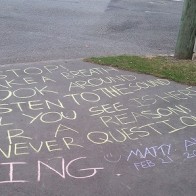 STOP!
TAKE A BREATH
LOOK AROUND
LISTEN TO THE SOUND
ALL YOU SEE IS
FOR A REASON
NEVER QUESTION
ING.
MATTY
FEB